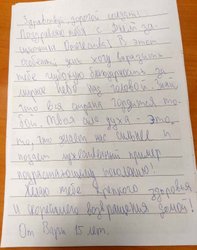 Здравствуй, дорогой солдат!
Поздравляю тебя с Днём за-
щитника Отечества! В этот
хочу выразить
тебе глубокую благодарность за
мирное небо над головой. Знай,
что вся страна гордится то-
бой! Твоя сила духа - это
то, что делает нас сильнее и
подаёт пример
подрастающему поколению!
Желаю тебе крепкого здоровья
и скорейшего возвращения домой!
От Вари 15 лет.